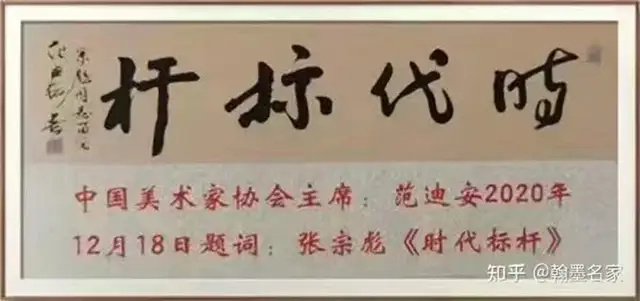 时代标杆
中国美术家协会主席：范迪安2020年
12月18日题词：张宗彪《时代标杆》
知乎 @翰墨名家